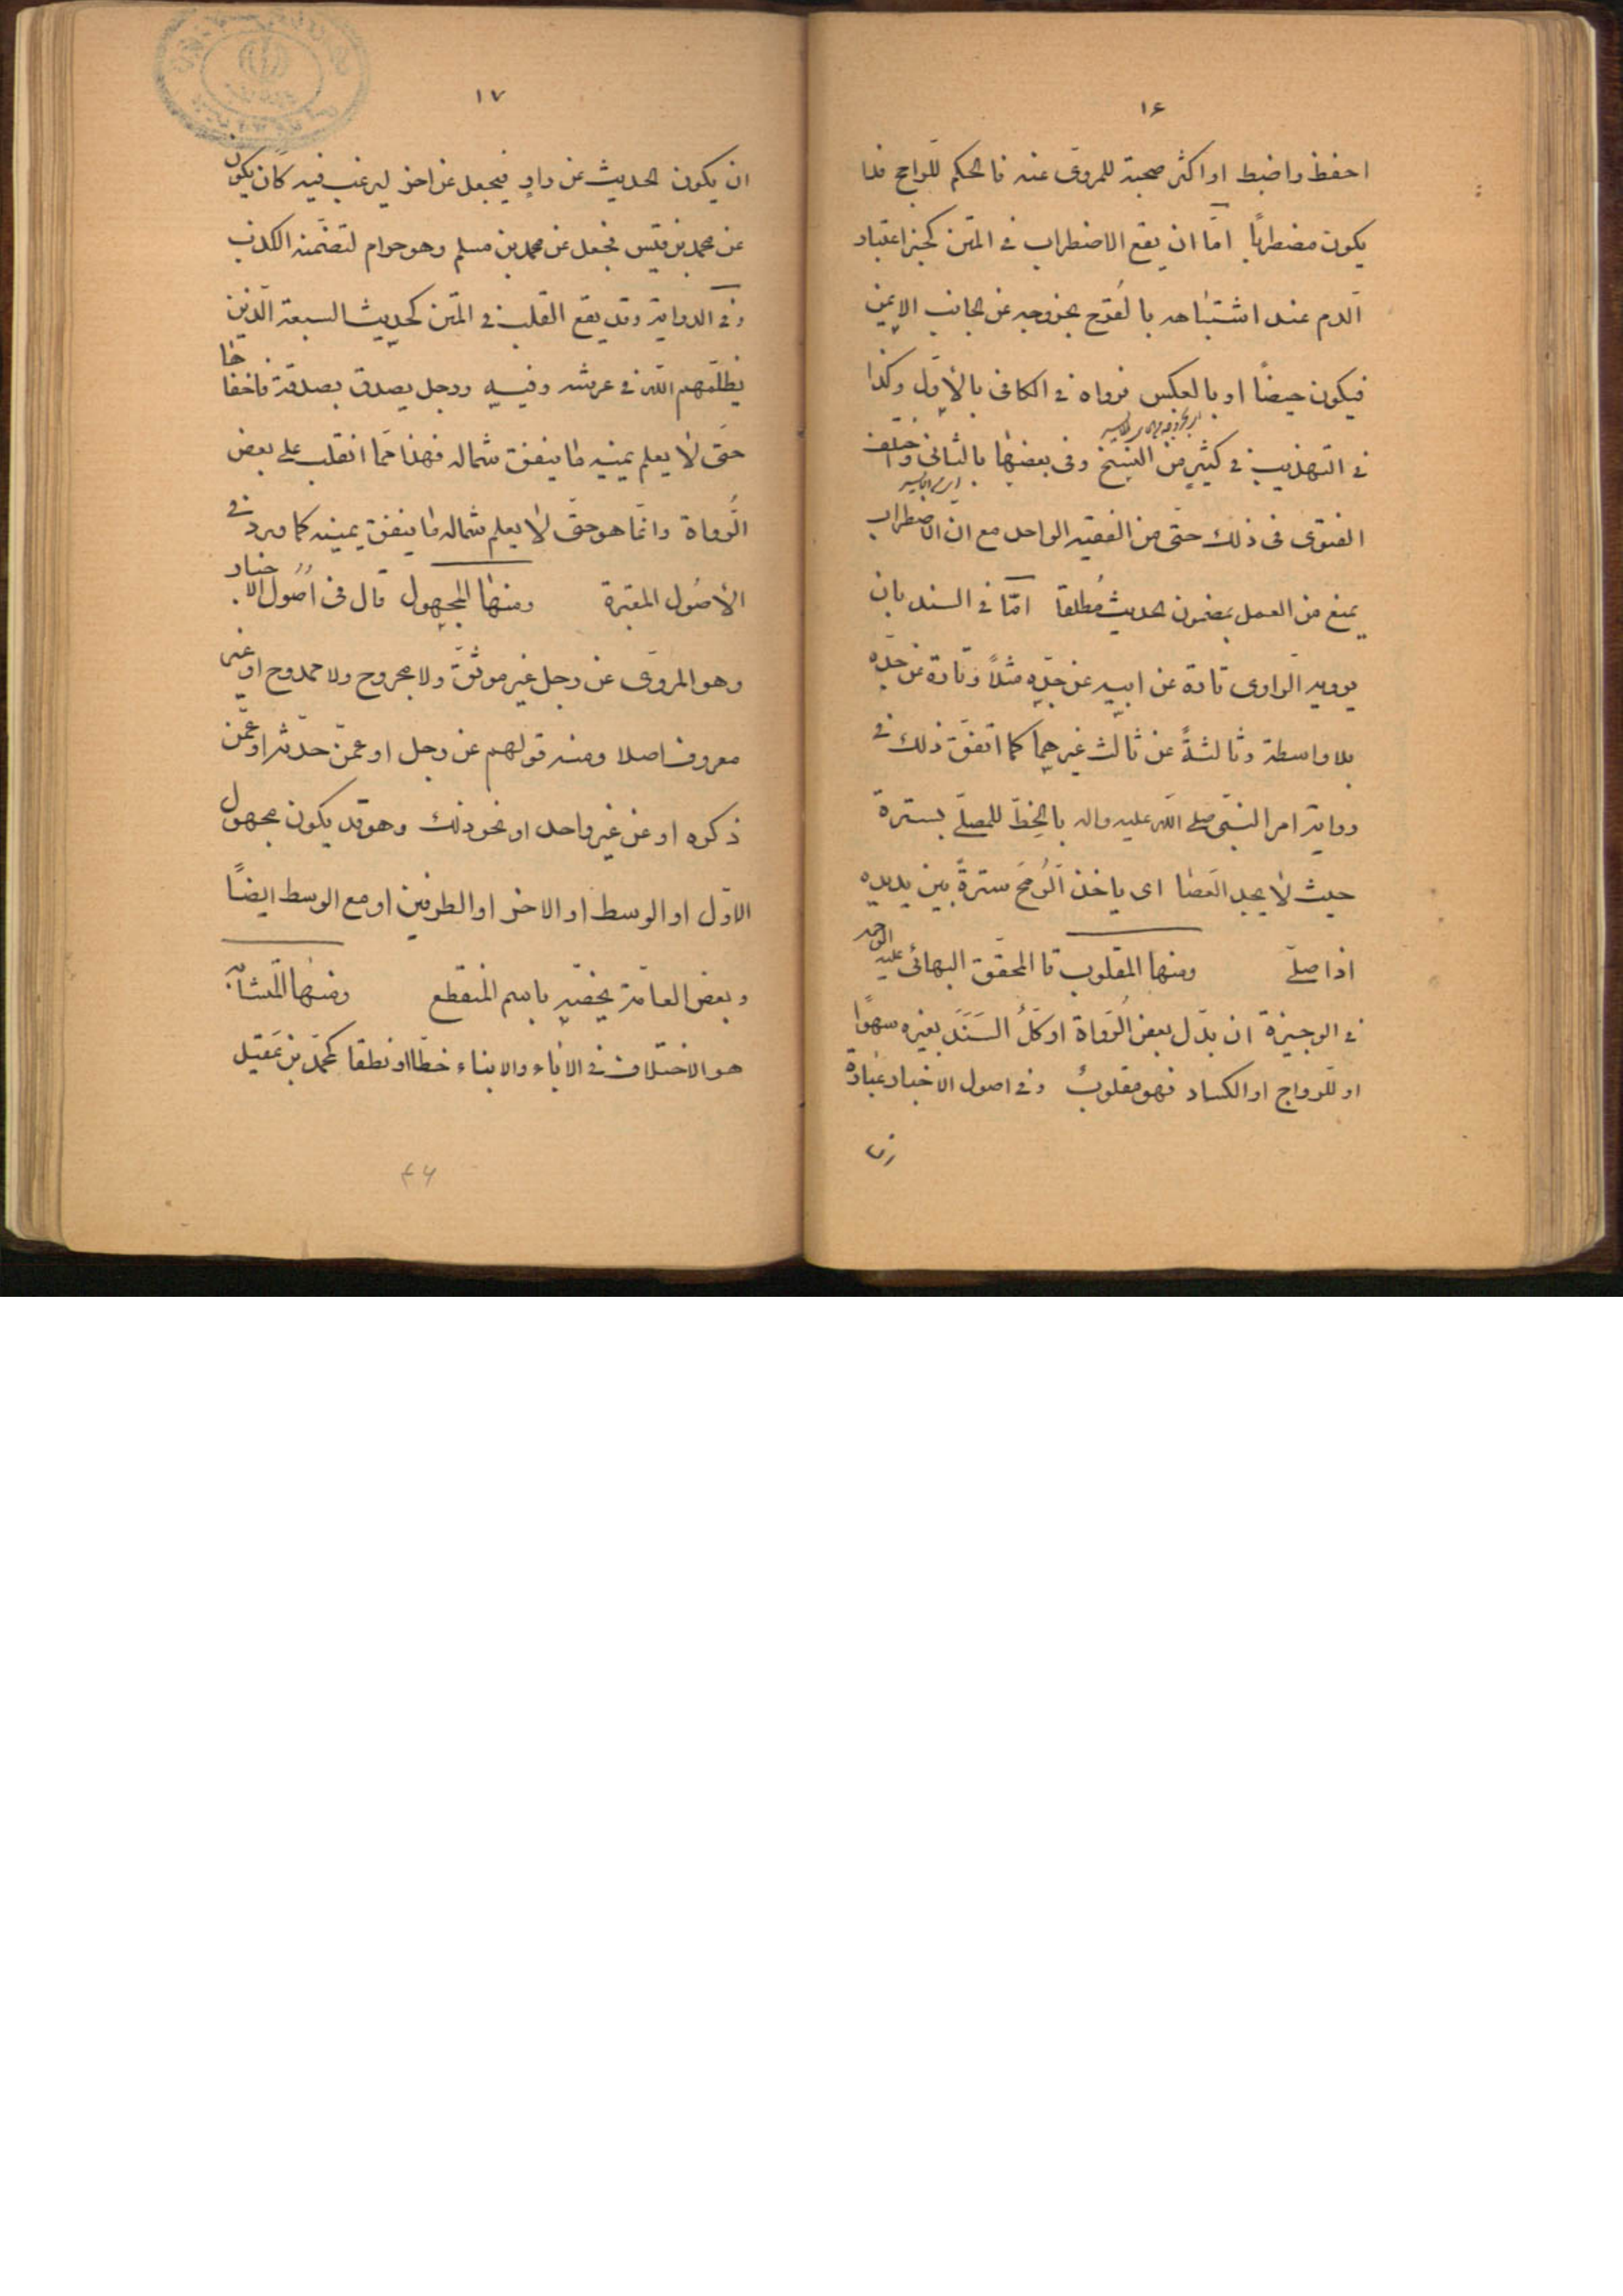 ١٦
احفظ واضبط او اكثر صحبة للمروى عنه فالحكم للراجح فلا
يكون مضطربًا امّا ان يقع الاضطراب فى المتن كخبر اعتبار
الدم عند اشتباهه بالقرح بخروجه عن الجانب الايمن
فيكون حيضًا او بالعكس فرواه فى الكافى بالأول وكذا
فى التهذيب فى كثير من النسخ وفى بعضها بالثانى واختلف
الفتوى فى ذلك حتى من الفقيه الواحد مع انّ الاضطراب
يمنع من العمل بمضمون الحديث مطلقا امّا فى السند بان
يرويه الراوى تارة عن ابيه عن جدّه مثلًا وتارة عن جدّه
بلا واسطة وثالثةً عن ثالث غيرهما كما اتفق ذلك فى
رواية امر النبىّ صلى الله عليه واله بالخطّ للمصلّى سترة
حيث لا يجد العصا اى ياخذ الرُمح سترةً بين يديه
اذا صلّى ومنها المقلوب قا المحقق البهائى عليه الرحمه
فى الوجيزة ان بدّل بعض الرُواة او كلُّ السَنَد بغيره سهوًا
او للرواج او الكساد فهو مقلوبٌ وفى اصول الاخبار عبارة
ان
١٧
ان يكون الحديث عن راوٍ فيجعل عن اخر ليرغب فيه كان يكون
عن محمد بن قيس فجعل عن محمد بن مسلم وهو حرام لتضمّنه الكذب
وفى الدراية وقد يقع القلب فى المتن كحديث السبعة الّذين
يظلّهم الله فى عرشه وفيه ورجل يصدق بصدقة فاخفاها
حتى لا يعلم يمينه ما ينفق شماله فهذا ممّا انقلب على بعض
الرُّواة وانّما هو حتّى لا يعلم شماله ما ينفق يمينه كما ورد فى
الأصُول المعتبرة ومنها المجهول قال فى اصُول الاخبار
وهو المروّى عن رجل غير موثقّ ولا مجروح ولا ممدوح او غير
معروف اصلا ومنه قولهم عن رجل او عمّن حدّثه او عمّن
ذكره او عن غير واحد او نحو ذلك وهو قد يكون مجهول
الاوّل او الوسط او الاخر او الطرفين او مع الوسط ايضًا
وبعض العامّة يخصّه باسم المنقطع ومنها المتشابه
هو الاختلاف فى الاباء والابناء خطّا او نطقا كمحمّد بن عَقيل
٤٦